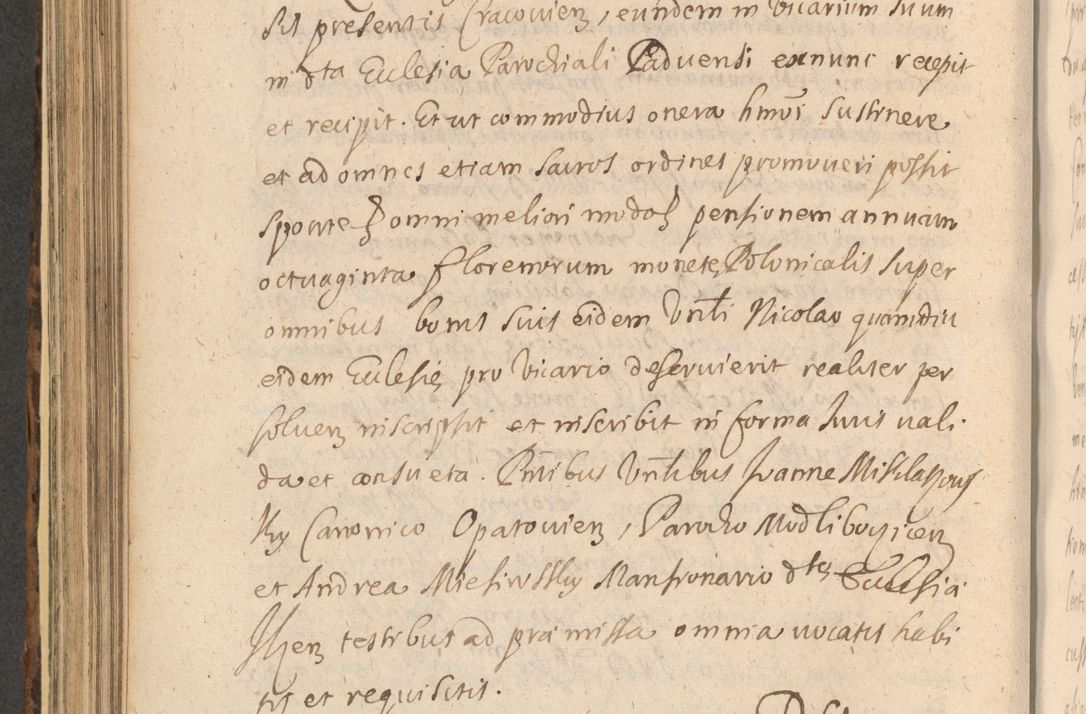 sis presentis Cracovien, eundem in vicarium suum
in dta Ecclesia Parochiali Paduensi exnunc recepit
et recipit. Et ut commodius onera hmoi sustinere
et ad omnes etiam sacros ordines promoveri possit
sponte omni meliori modo pensionem annuam
octuaginta florenorum monete Polonicalis super
omnibus bonis suis eidem Vnli Nicolao quamdiu
eidem Ecclesię pro vicario deservierit realiter per
solven inscripsit et inscribit in forma Iuris vali.
da et consueta. Pntibus Vnlibus Ioanne Misklaszows
ky Canonico Opatovien, Parocho Modliboricen
et Andrea Miesiowsky Mansionario dtę Ecclesiæ
testibus ad præmissa omnia vocatis habi
tis et requisitis.